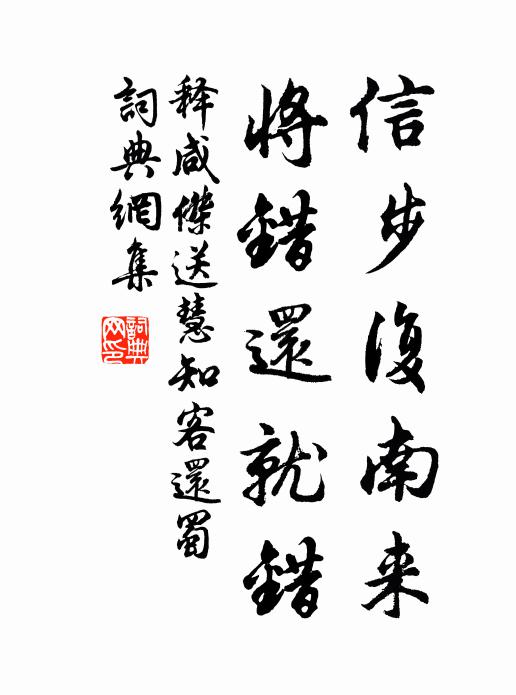 信步復南来
將錯還就錯
释咸傑送慧知客還蜀
詞典網集
詞典網印